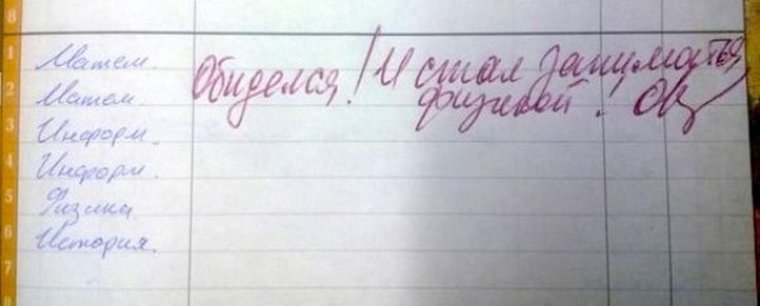 8
1 Матем.
2 Матем.
3 Информ.
4 Информ.
5 Физика
6 История.
7
8
Обиделся! И стал заниматься
физикой!